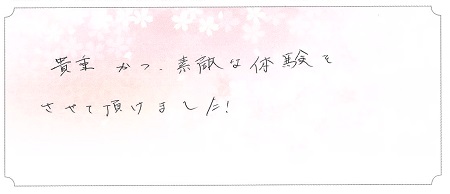 貴重かつ、素敵な体験を
させて頂けました!